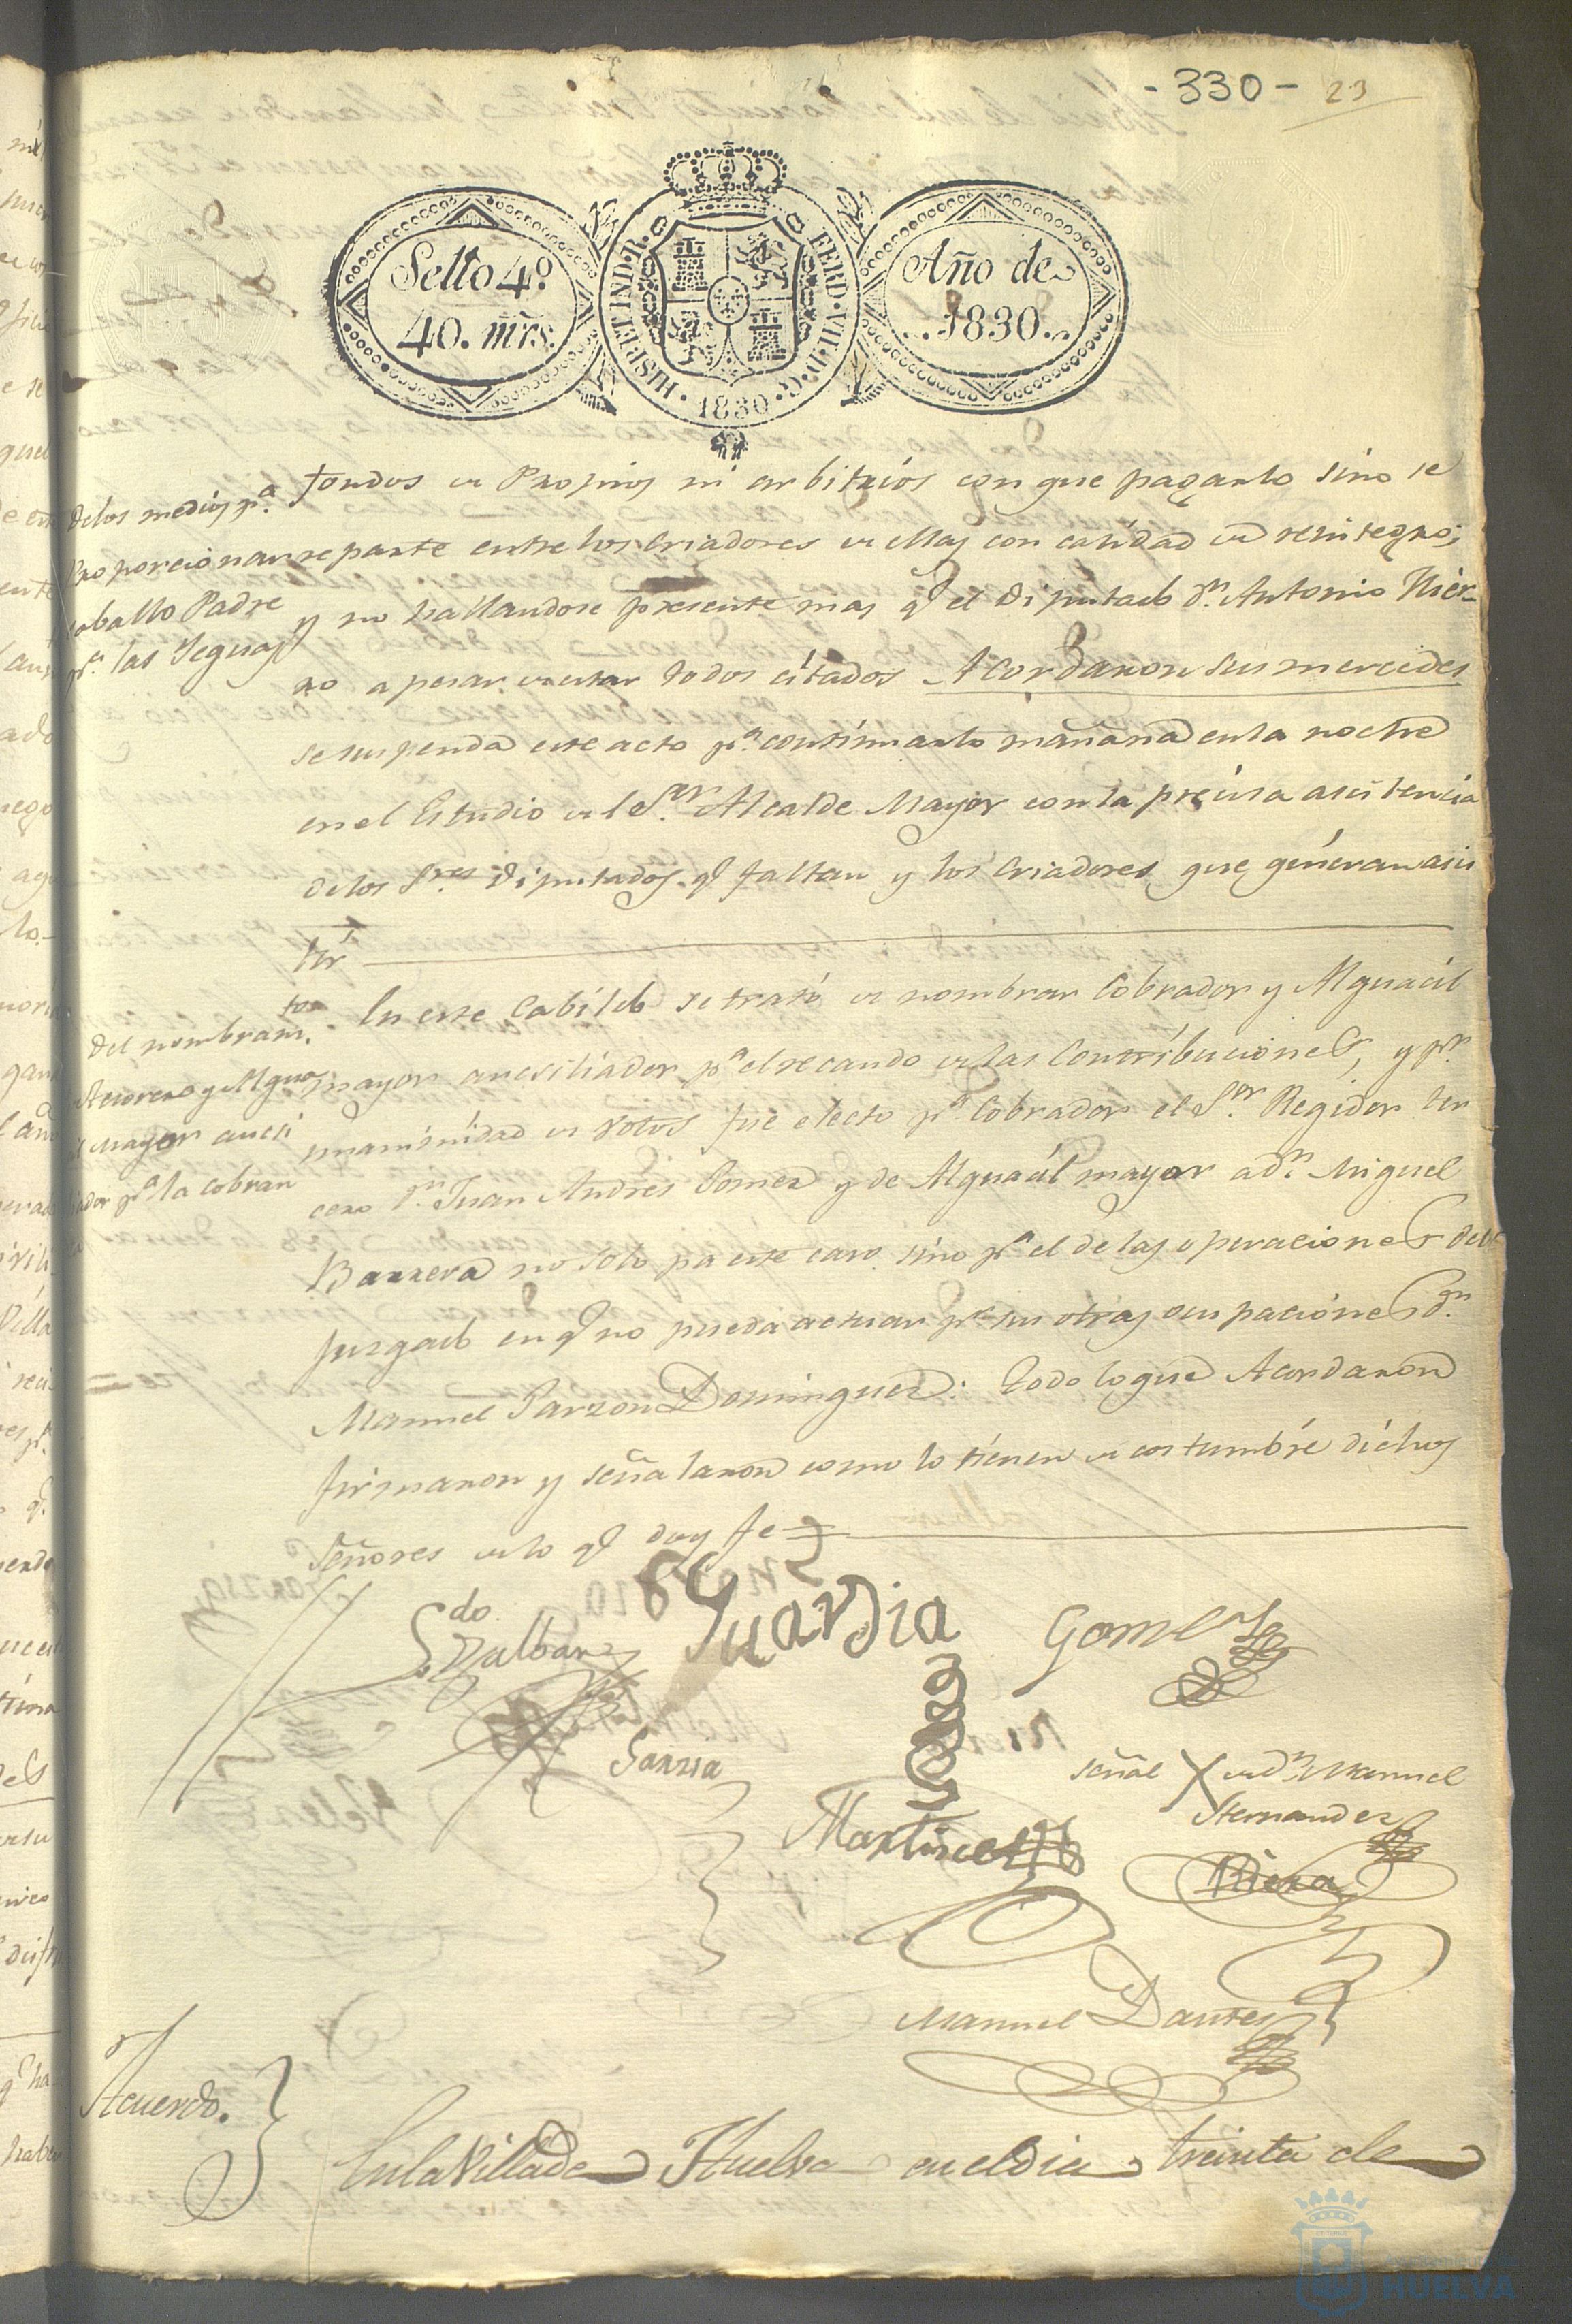 - 330 -
23
Sello 4º
40. mrs.
HISP. ET IND. R.
FERD. VII. D. G.
· 1830 ·
Año de
1830.
fondos de Propios ni arbitrios con que pagarlo sino se
reparte entre los Criadores de ellas con calidad de reintegro;
y no hallandose presente mas q.e el Diputado Dn. Antonio Hier-
ro apesar de estar todos citados Acordaron sus mercedes
se suspenda este acto p.a continuarlo mañana en la noche
en el Estudio del Sor. Alcalde Mayor con la precisa asistencia
de los Sres. Diputados q.e faltan y los Criadores que quieran asis
tir
De los medios p.a
Proporcionar
caballo Padre
p.a las Yeguas
En este Cabildo se trató de nombrar Cobrador y Alguacil
mayor aucsiliador p.a el recaudo de las Contribuciones, y p.r
unanimidad de votos fue electo p.a Cobrador el Sor. Regidor ter
cero Dn. Juan Andres Gomez y de Alguacil mayor a Dn. Miguel
Barrera no solo pa este caso sino p.a el de las operaciones del
juzgado en q.e no pueda actuar p.r sus otras ocupaciones Dn.
Manuel Garzon Dominguez: Todo lo que Acordaron
firmaron y señalaron como lo tienen de costumbre dichos
Señores de lo q.e doy fe
Del nombramto.
Tesorero y Algua
l mayor aucsi
iador p.a la cobran
Ldo. Zalbar
Guardia
Gomez
Garzia
señal X de Dn. Manuel
Hernandez
Martinez
Riera
Manuel Dantes
Acuerdo.
En la Villa de Huelva en el dia treinta de
HUELVA